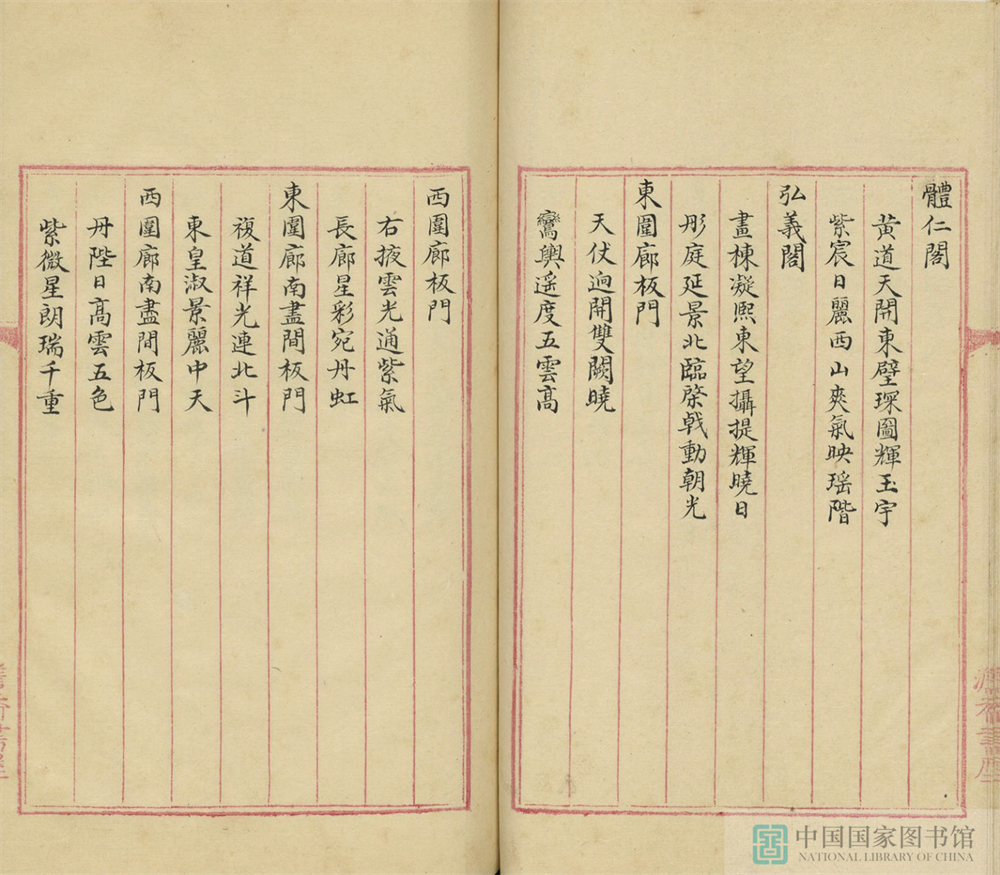 體仁閣
黃道天開東壁琛圖輝玉宇
紫宸日麗西山爽氣映瑤階
弘義閣
畫棟凝熙東望攝提輝曉日
彤庭延景北臨棨戟動朝光
東圍廊板門
天仗迥開雙闕曉
鸞輿遥度五雲高
西圍廊板門
右掖雲光通紫氣
長廊星彩宛丹虹
東圍廊南盡間板門
複道祥光連北斗
東皇淑景麗中天
西圍廊南盡間板門
丹陛日高雲五色
紫微星朗瑞千重
中国国家图书馆
NATIONAL LIBRARY OF CHINA